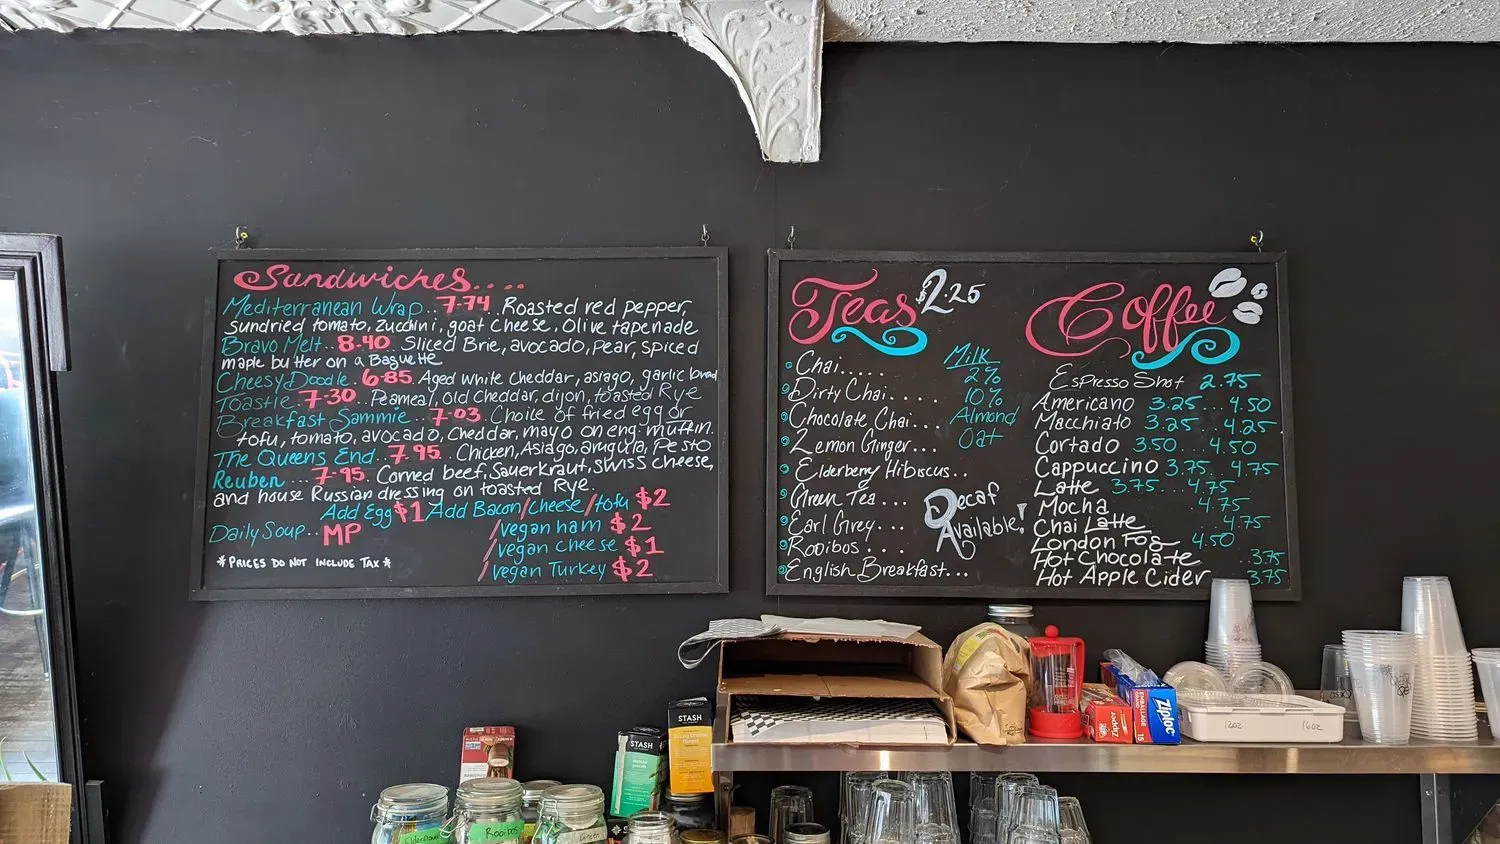 Sandwiches....
Mediterranean Wrap..7.74 Roasted red pepper,
sundried tomato, zucchini, goat cheese, Olive tapenade
Bravo Melt..8.40. Sliced Brie, avocado, pear, spiced
maple butter on a Baguette
Cheesy Doodle.6.85. Aged white cheddar, asiago, garlic bread
Toastie 7.30..Peameal, old cheddar, dijon, toasted Rye
Breakfast Sammie..7.03. Choice of fried egg or
tofu, tomato, avocado, cheddar, mayo on eng. muffin.
The Queens End..7.95. Chicken, Asiago, arugula, Pesto
Reuben...7.95. Corned beef, Sauerkraut, swiss cheese,
and house Russian dressing on toasted Rye.
Add Egg $1 Add Bacon/cheese/tofu $2
/vegan ham $2
Daily Soup..MP
/vegan cheese $1
/vegan Turkey $2
*PRICES DO NOT INCLUDE TAX*
Teas $2.25
Chai.....
Dirty Chai.....
Chocolate Chai...
Lemon Ginger...
Elderberry Hibiscus..
Green Tea...
Earl Grey...
Rooibos....
English Breakfast...
Milk
2%
10%
Almond
Oat
Decaf
Available!
Coffee
Espresso Shot 2.75
Americano 3.25...4.50
Macchiato 3.25...4.25
Cortado 3.50...4.50
Cappuccino 3.75..4.75
Latte 3.75...4.75
Mocha 4.75
Chai Latte ..4.75
London Fog 4.50
Hot Chocolate ..3.75
Hot Apple Cider 3.75
STASH
STASH
Rooibos
Green
Ziploc
EMBALLAGE
12oz
16oz